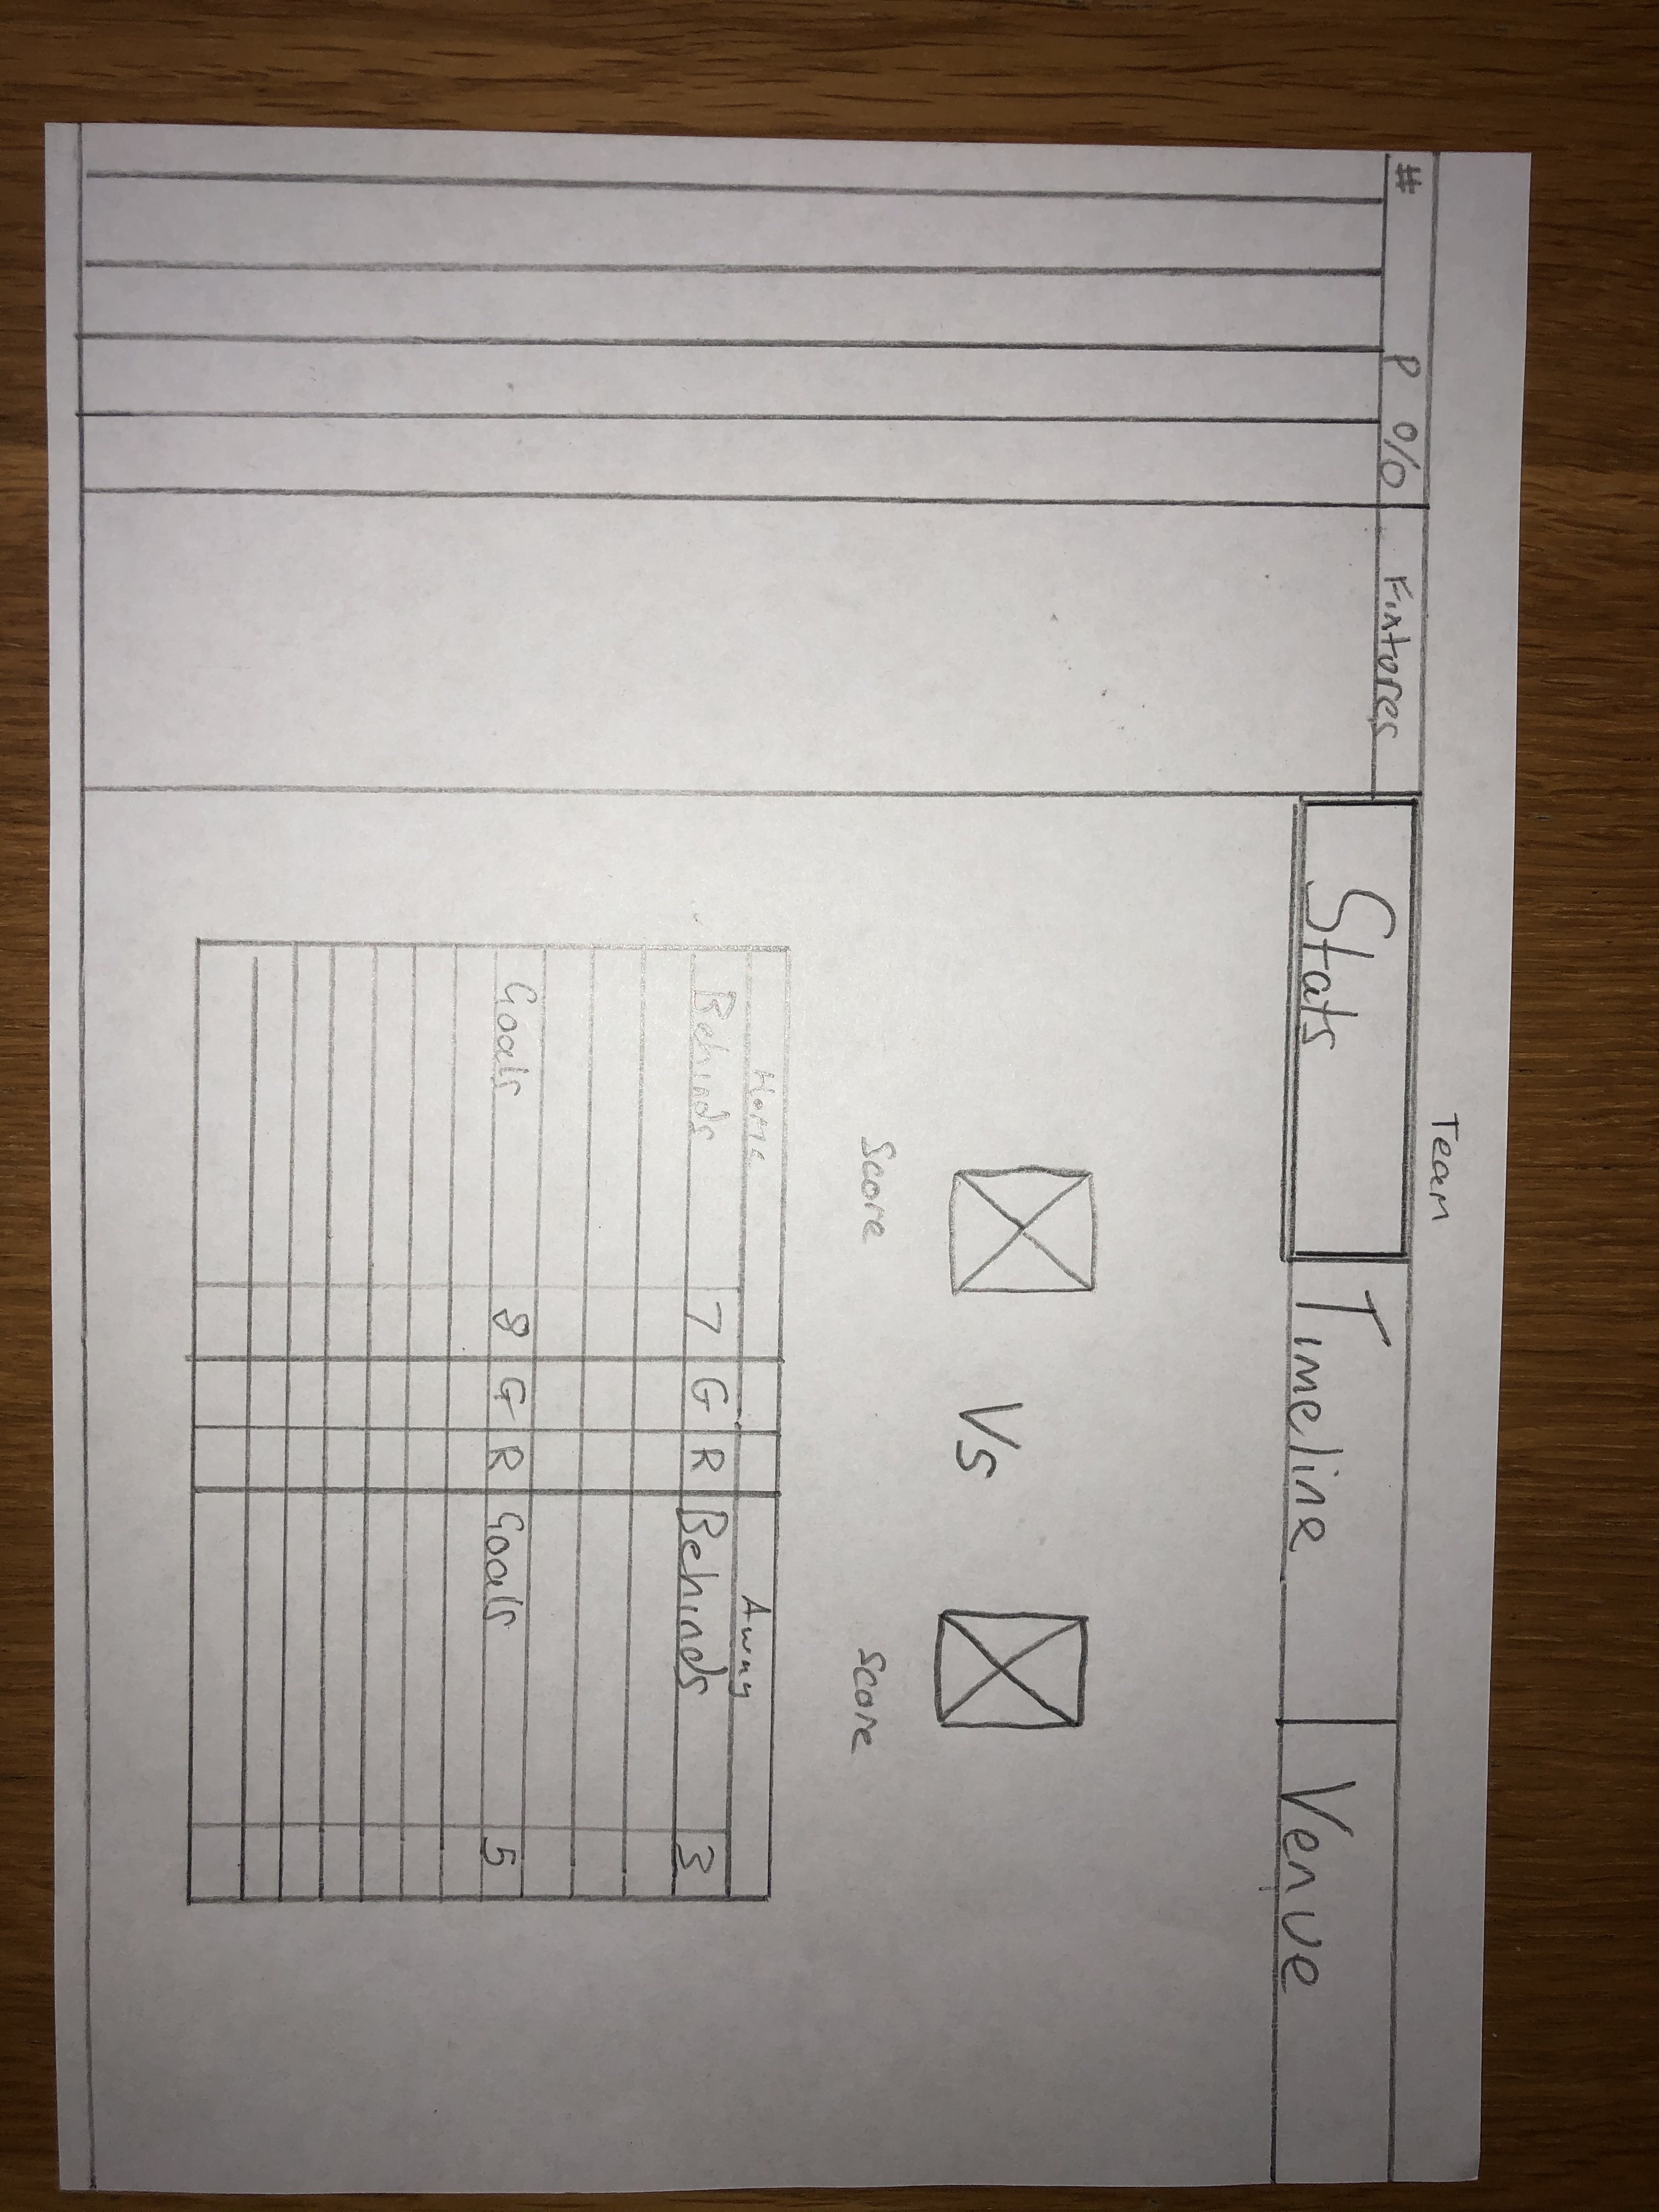 Team
# P % Fixtures Stats Timeline Venue
Vs
Score Score
Home Away
Behinds 7 G R Behinds 3
Goals 8 G R Goals 5